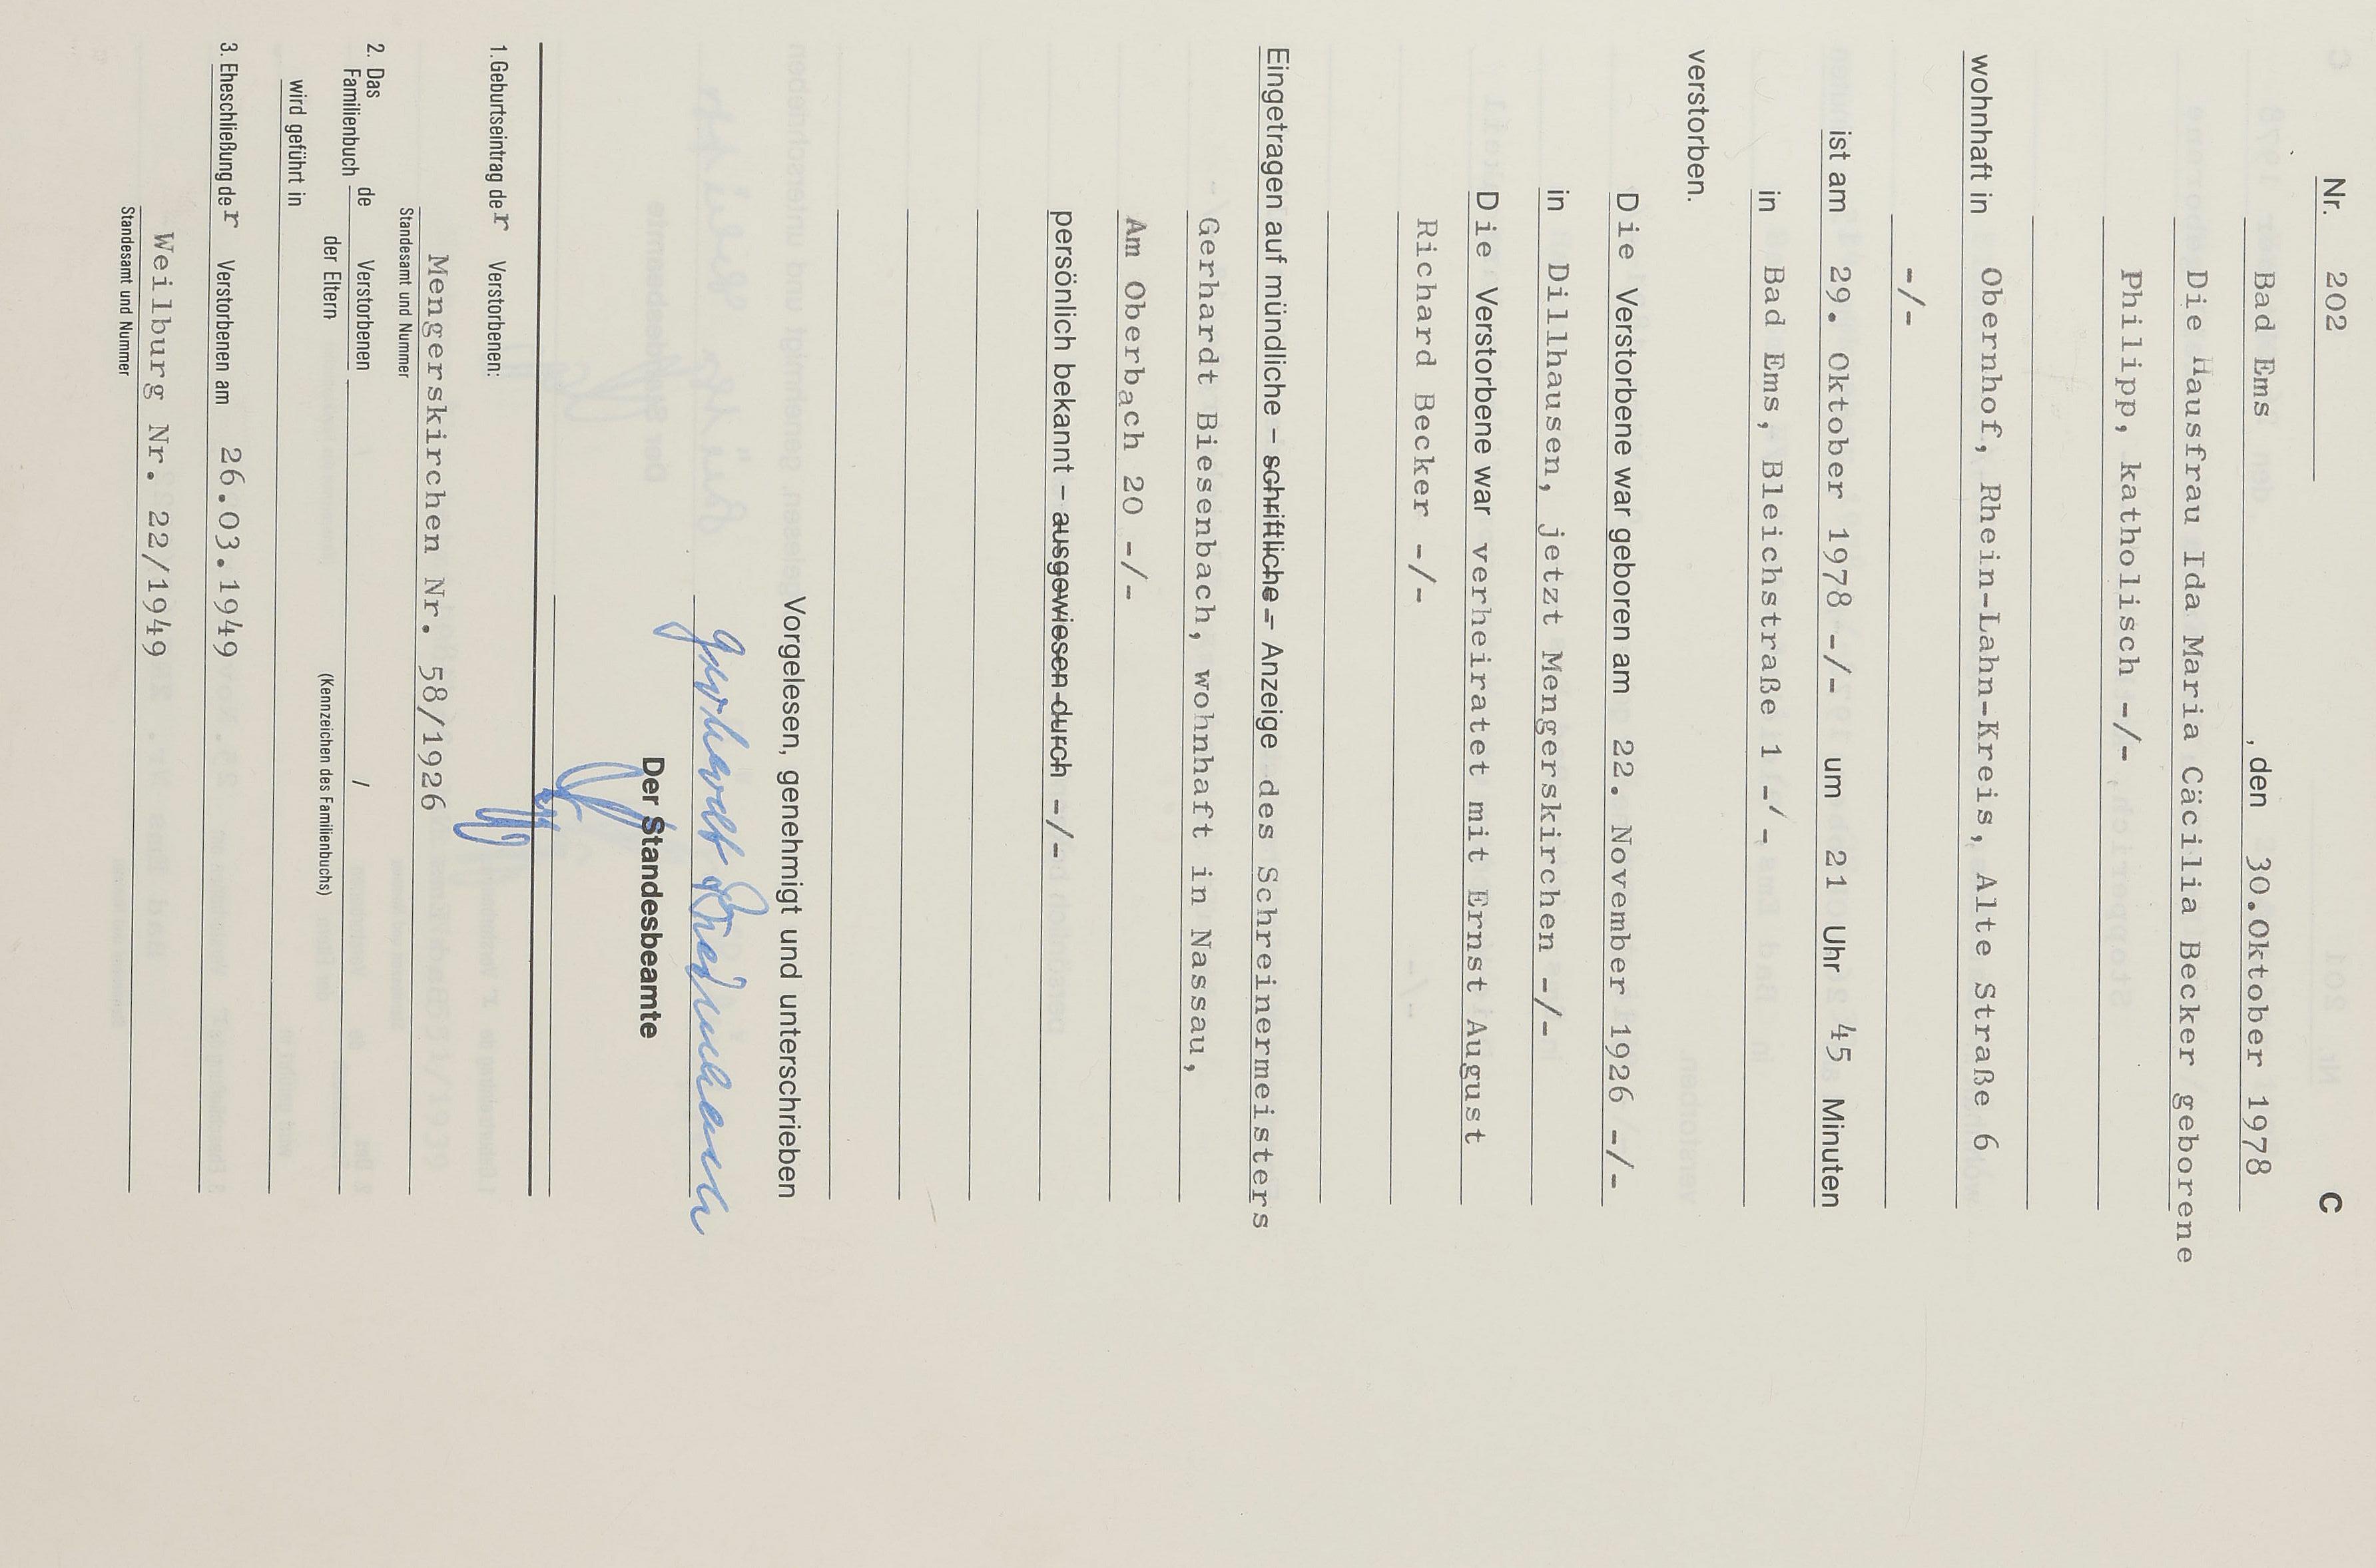 Nr. 202 C
Bad Ems , den 30.Oktober 1978
Die Hausfrau Ida Maria Cäcilia Becker geborene
Philipp, katholisch -/-
wohnhaft in Obernhof, Rhein-Lahn-Kreis, Alte Straße 6
-/-
ist am 29. Oktober 1978 -/- um 21 Uhr 45 Minuten
in Bad Ems, Bleichstraße 1 -/-
verstorben.
Die Verstorbene war geboren am 22. November 1926 -/-
in Dillhausen, jetzt Mengerskirchen -/-
Die Verstorbene war verheiratet mit Ernst August
Richard Becker -/-
Eingetragen auf mündliche – schriftliche – Anzeige des Schreinermeisters
Gerhardt Biesenbach, wohnhaft in Nassau,
Am Oberbach 20 -/-
persönlich bekannt – ausgewiesen durch -/-
Vorgelesen, genehmigt und unterschrieben
Gerhardt Biesenbach
Der Standesbeamte
1. Geburtseintrag der Verstorbenen:
Mengerskirchen Nr. 58/1926
Standesamt und Nummer
2. Das Familienbuch de Verstorbenen /
der Eltern (Kennzeichen des Familienbuchs)
wird geführt in
3. Eheschließung der Verstorbenen am 26.03.1949
Weilburg Nr. 22/1949
Standesamt und Nummer